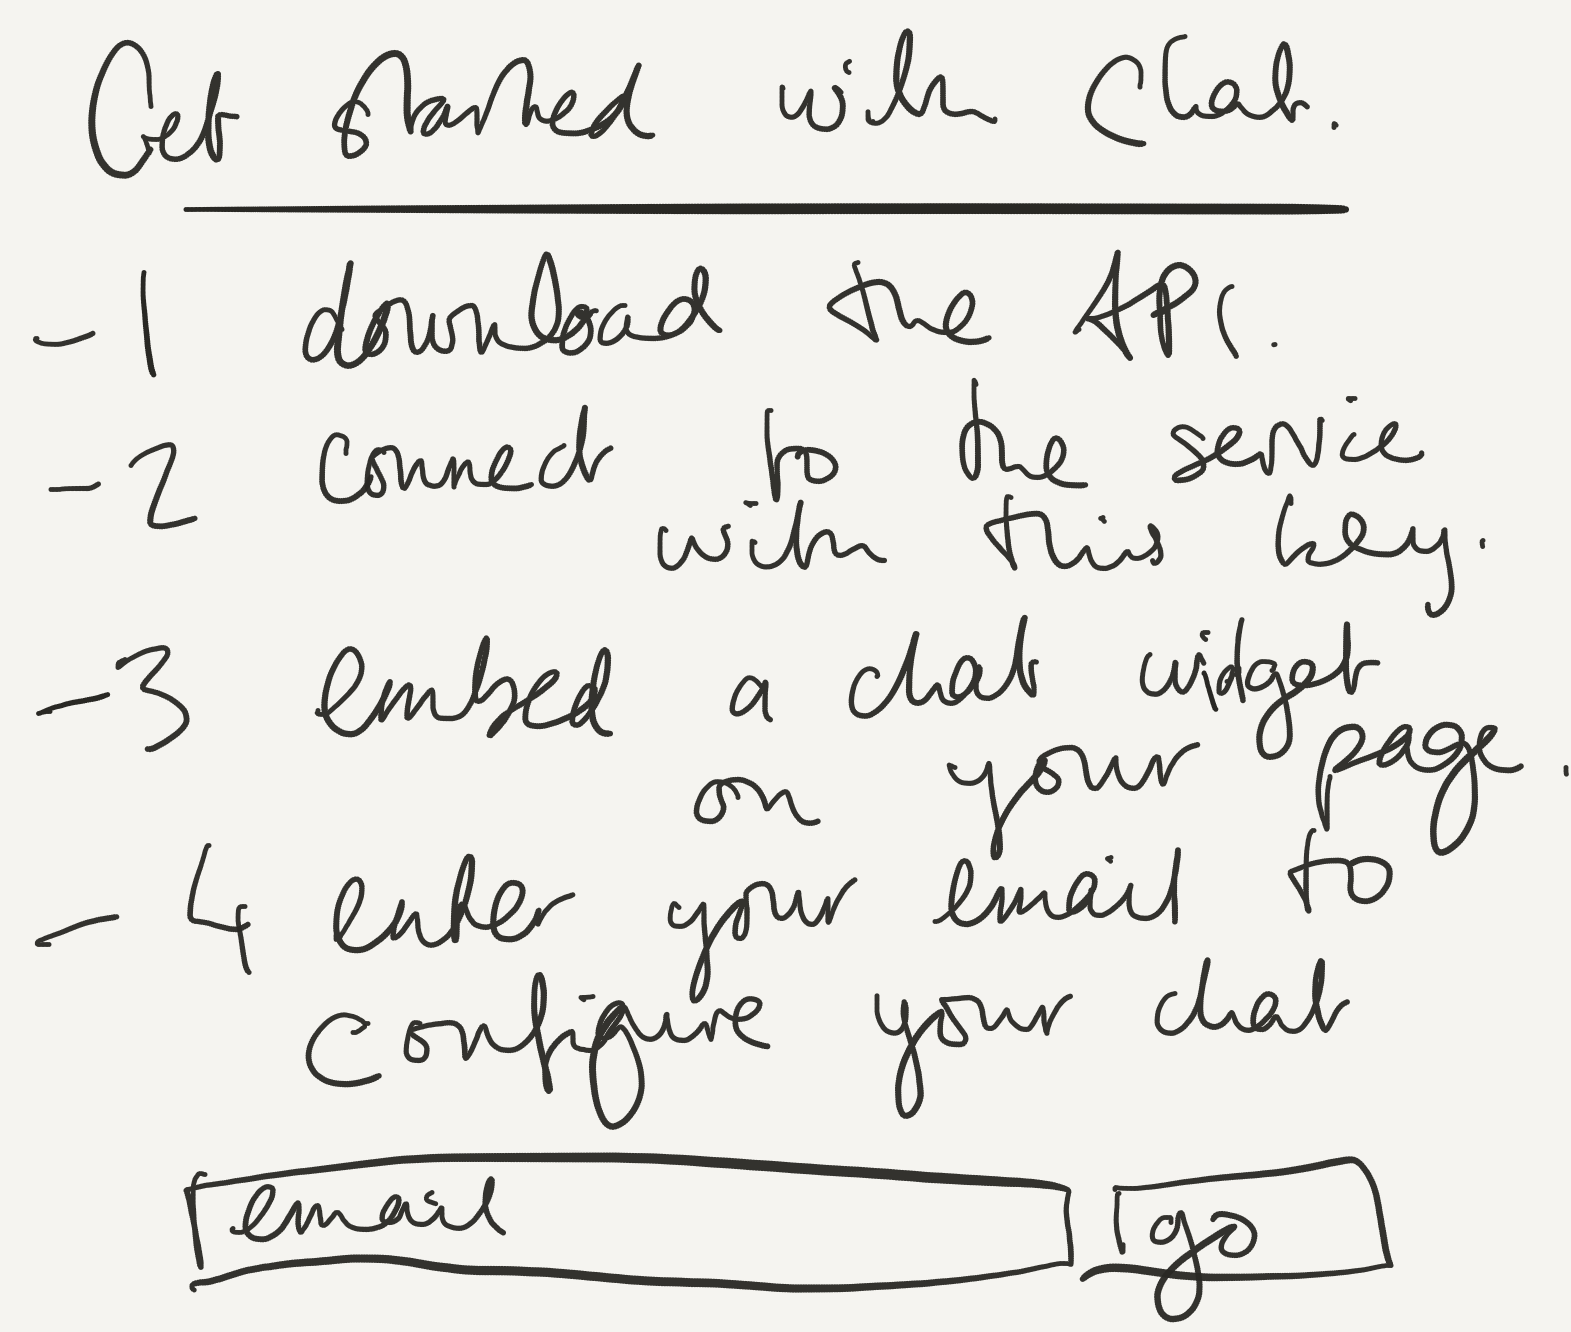 Get started with Chat.
- 1 download the API.
- 2 connect to the service
with this key.
- 3 embed a chat widget
on your page.
- 4 enter your email to
configure your chat
email go